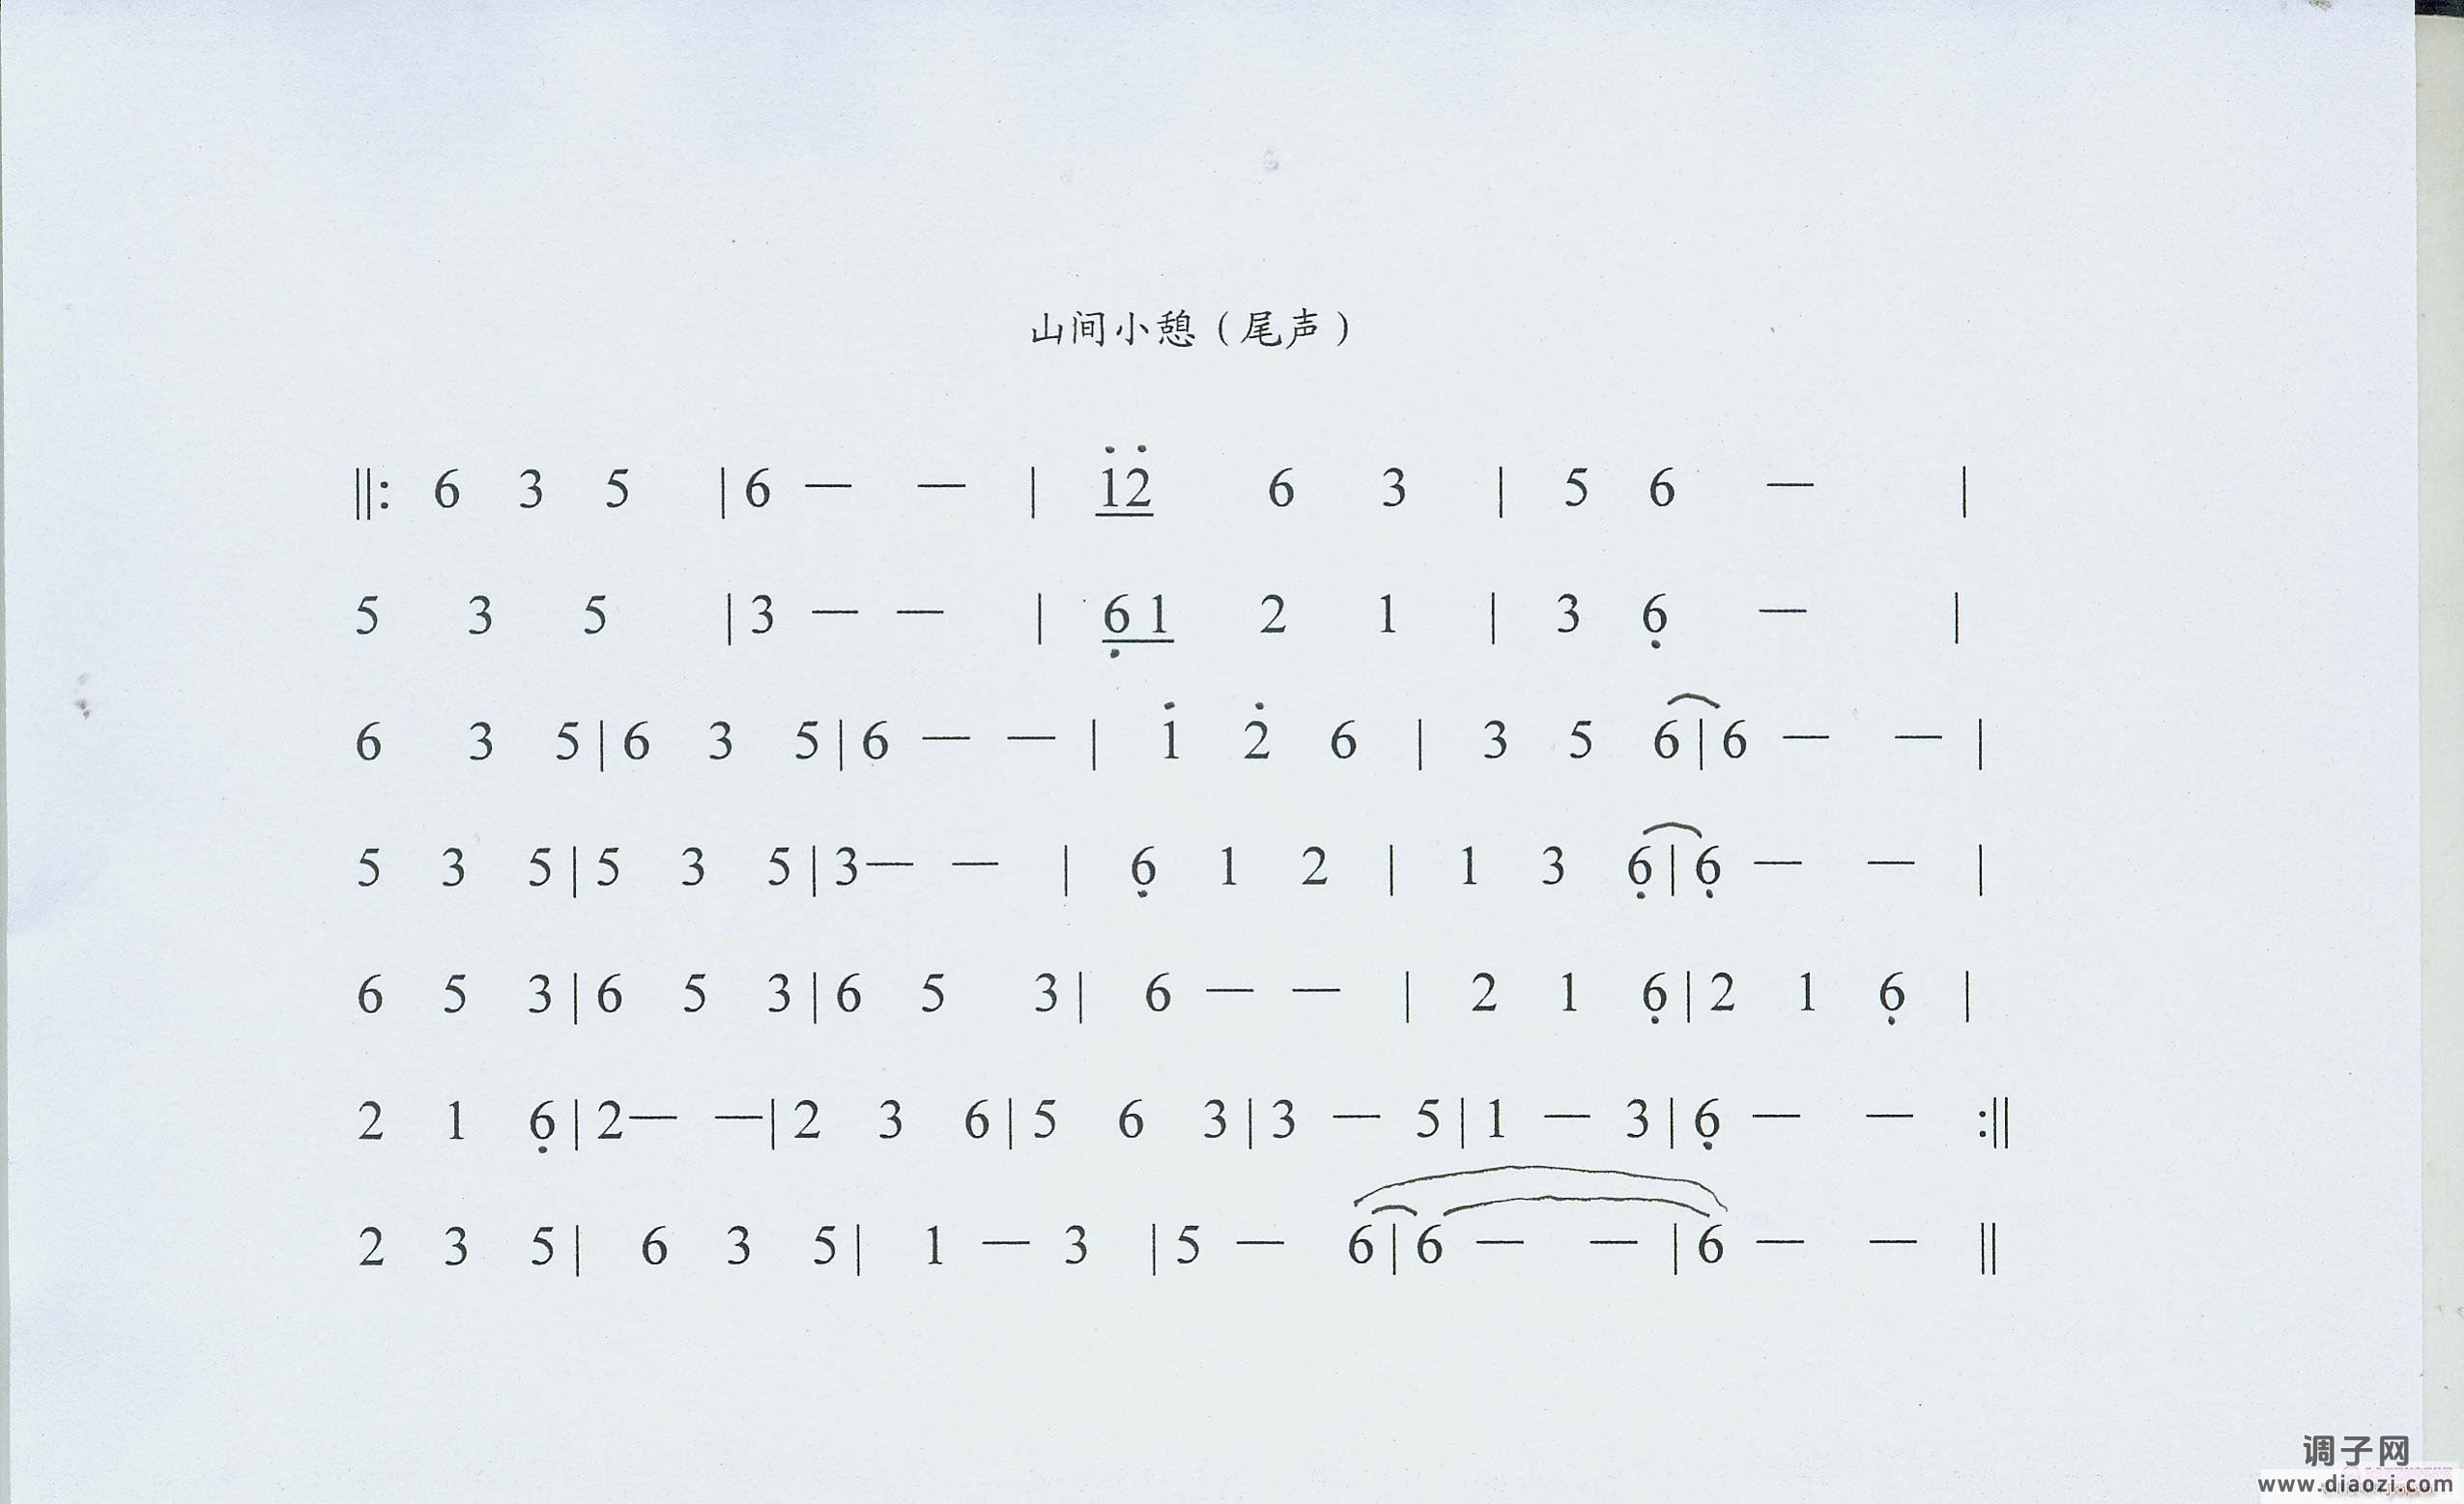 山间小憩（尾声）
‖: 6 3 5 | 6 — — | 1̇2̇ 6 3 | 5 6 — |
5 3 5 | 3 — — | 6̣ 1 2 1 | 3 6̣ — |
6 3 5 | 6 3 5 | 6 — — | 1̇ 2̇ 6 | 3 5 6 | 6 — — |
5 3 5 | 5 3 5 | 3 — — | 6̣ 1 2 | 1 3 6̣ | 6̣ — — |
6 5 3 | 6 5 3 | 6 5 3 | 6 — — | 2 1 6̣ | 2 1 6̣ |
2 1 6̣ | 2 — — | 2 3 6 | 5 6 3 | 3 — 5 | 1 — 3 | 6̣ — — :‖
2 3 5 | 6 3 5 | 1 — 3 | 5 — 6 | 6 — — | 6 — — ‖
调子网
www.diaozi.com